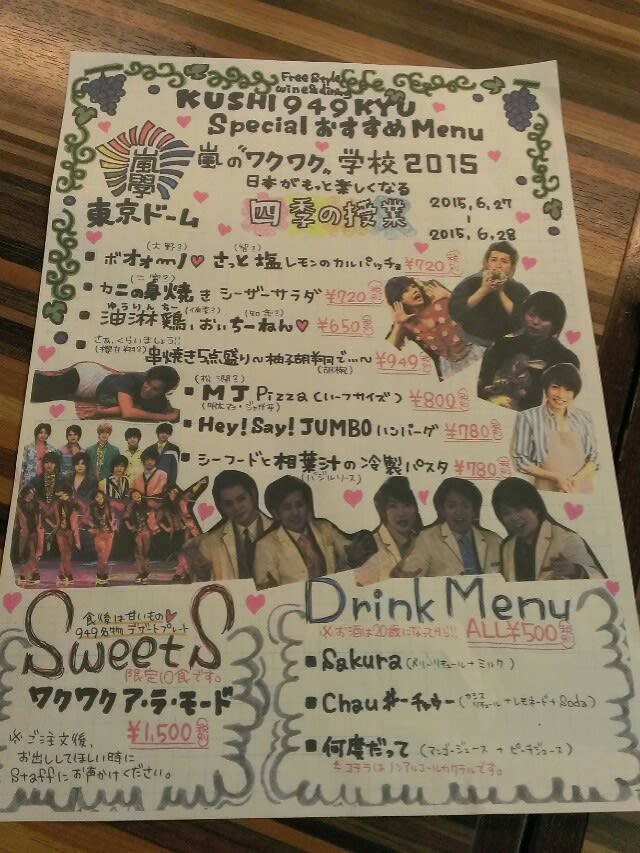 Free Style
wine & dining
KUSHI 949 KYU
Special おすすめ Menu
嵐
學
嵐の"ワクワク"学校2015
日本がもっと楽しくなる
東京ドーム
四季の授業
2015.6.27
2015.6.28
(大野?) (智?)
■ ボオォーノ♥さっと塩レモンのカルパッチョ ¥720
(二宮?)
■ カニの身焼きシーザーサラダ ¥720
ゆうりんちー
■ 油淋鶏,おぃちーねん♥ ¥650
さぁ、くらいましょう!!
(櫻井翔?)
■ 串焼き5点盛り〜柚子胡翔で…〜 ¥949
(胡椒)
(松潤?)
■ MJ Pizza (ハーフサイズ) ¥800
(明太マヨ・ジャガ芋)
■ Hey! Say! JUMBO ハンバーグ ¥780
■ シーフードと相葉汁の冷製パスタ ¥780
(バジルソース)
食後は甘いもの♥
949名物デザートプレート
Sweets
限定10食です。
ワクワクア・ラ・モード
¥1,500
※ご注文後、
お出ししてほしい時に
Staffにお声かけください。
Drink Menu
※お酒は20歳になってから!! ALL¥500
■ Sakura (リキュール+ミルク)
■ Chau#チャウー (カシスリキュール+レモネード+Soda)
■ 何度だって (マンゴージュース+ピーチジュース)
コチラはノンアルコールカクテルです。